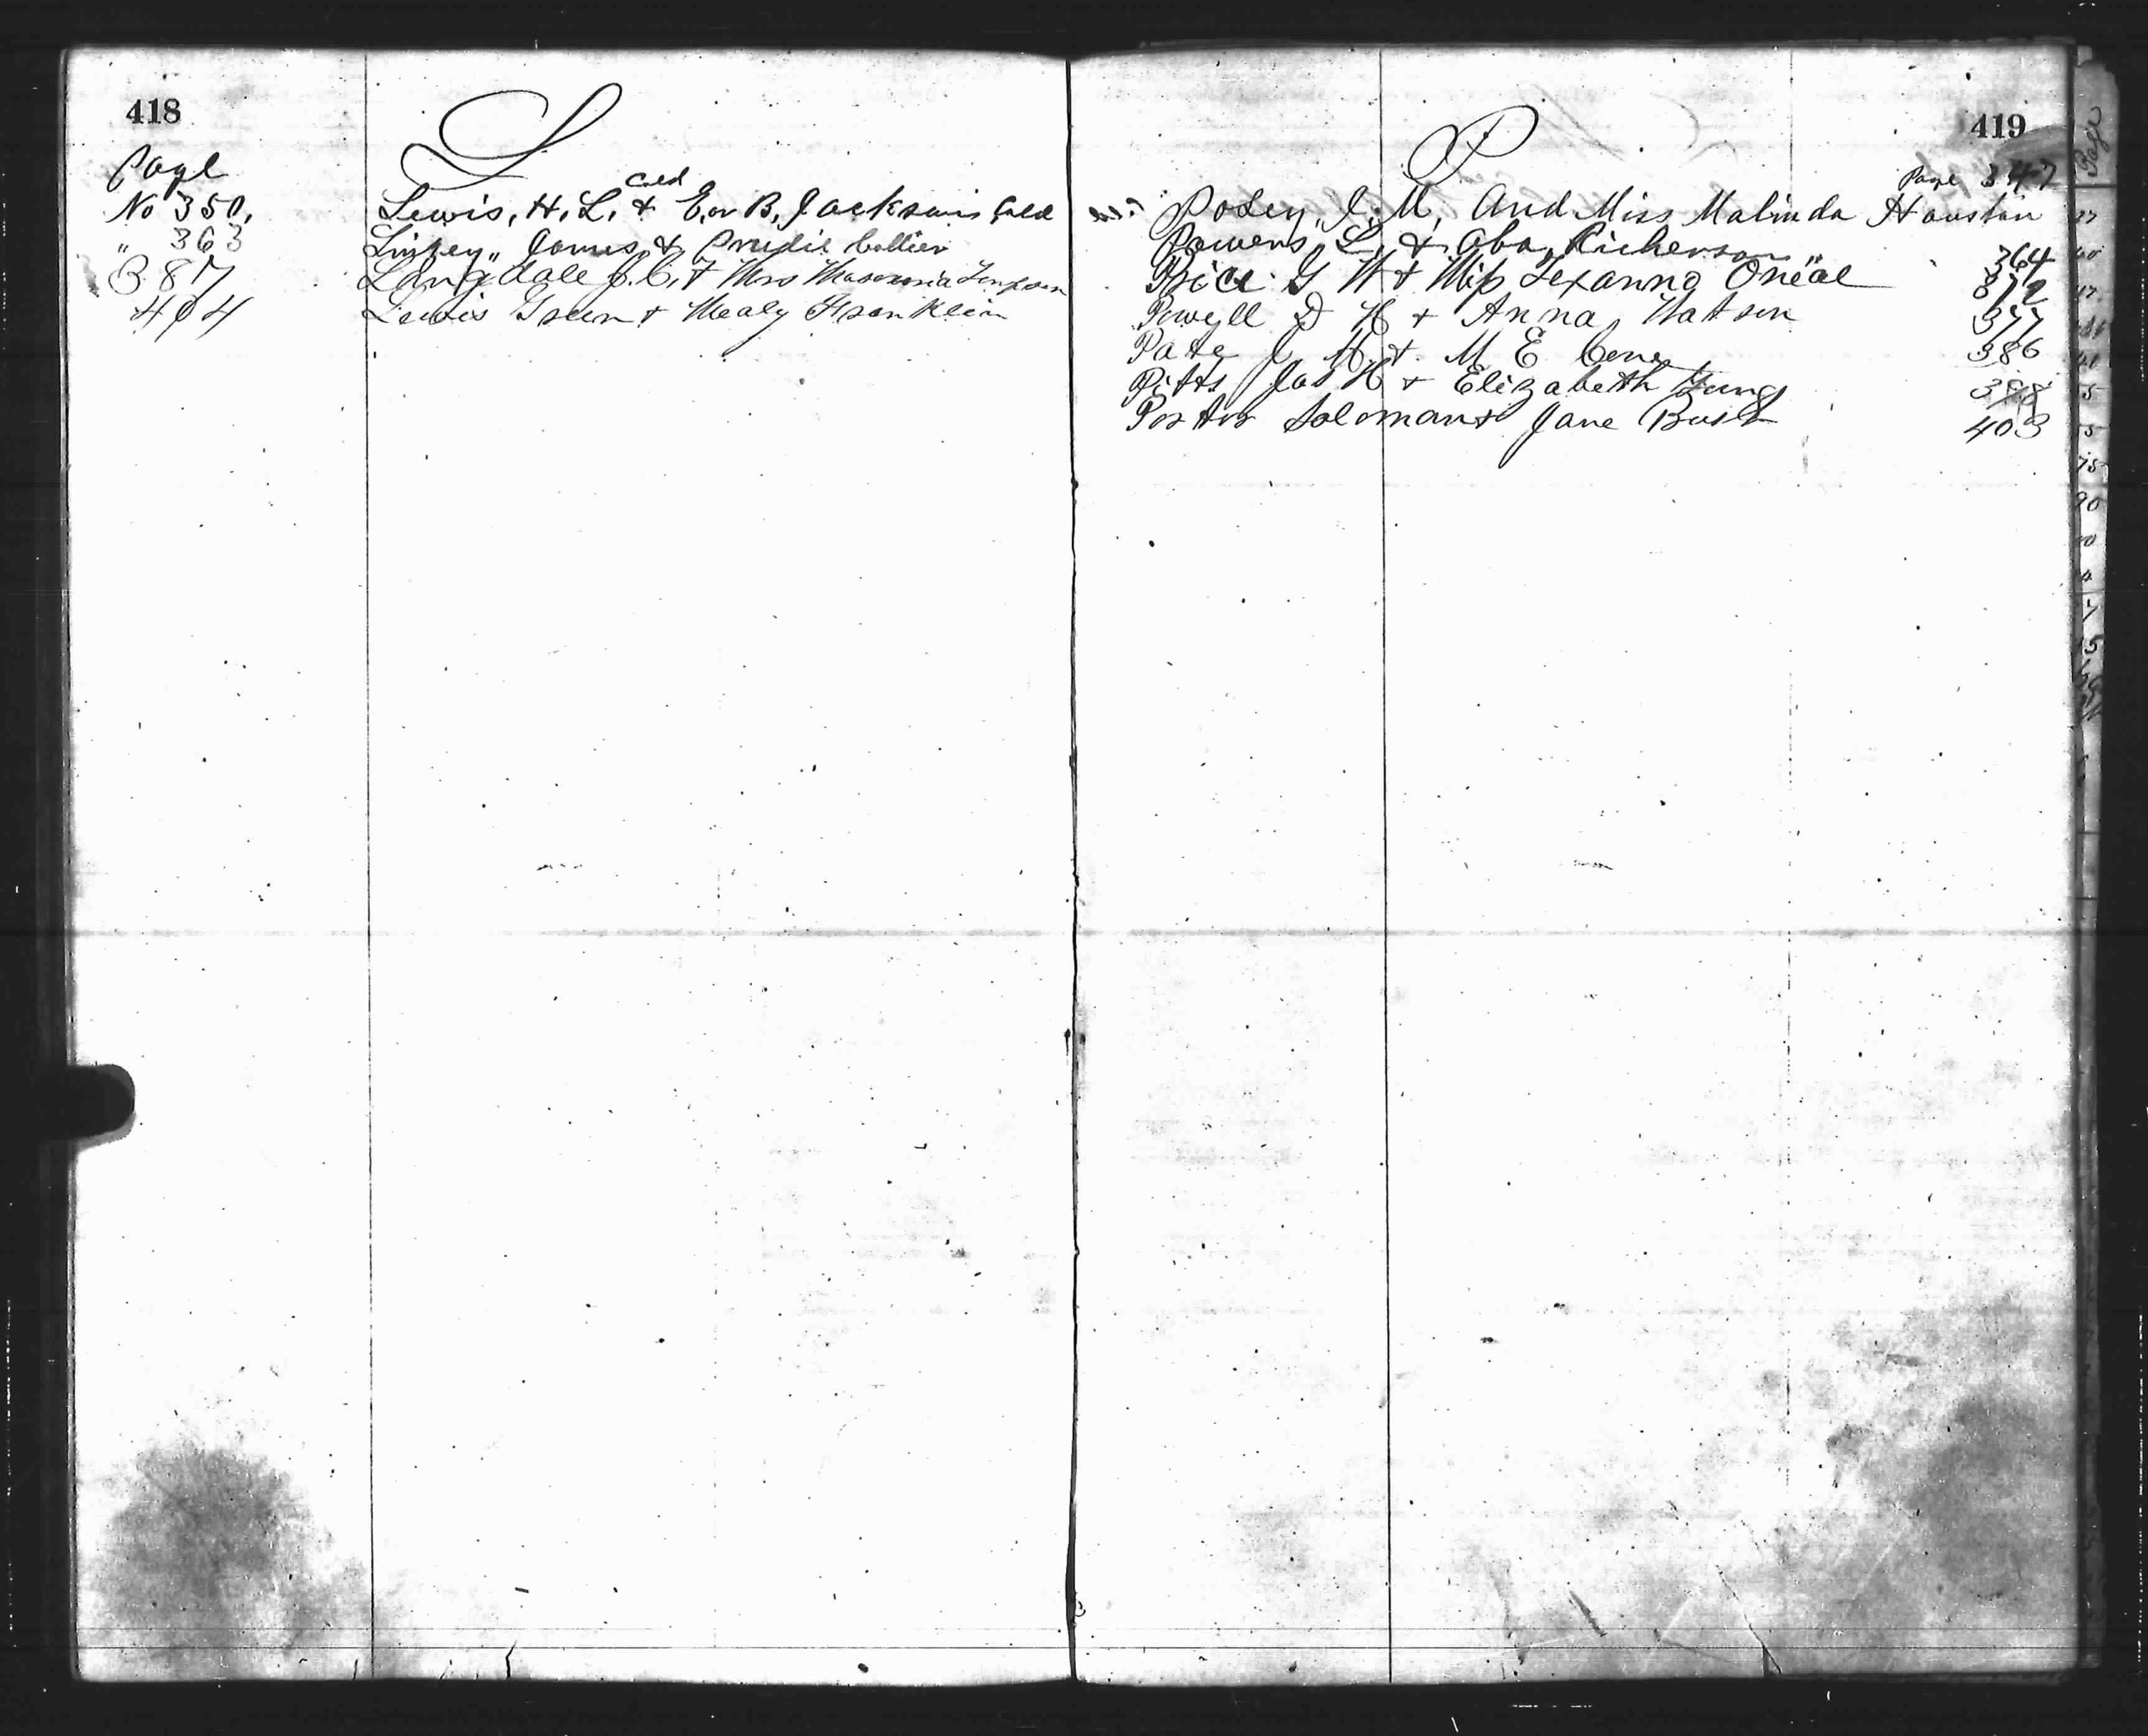 418
L
Page
No 350, Lewis, H. L. Cold & E. or B. Jackson Cold
" 363 Linzey, James & Prudie Collier
387 Langdale J. C. & Mrs
404 Lewis Green & Mealy Franklin
419
P
Page 347
Posey, J. M. And Miss Malinda Houston
Powers, L. & Aba Richerson " 364
Price G W & Miss Lexanna Oneal 372
Powell D H & Anna Watson 377
Pate J. M. & M E 386
Pitts Jas H & Elizabeth Yung 398
Porter Soloman & Jane Bush 403
Page